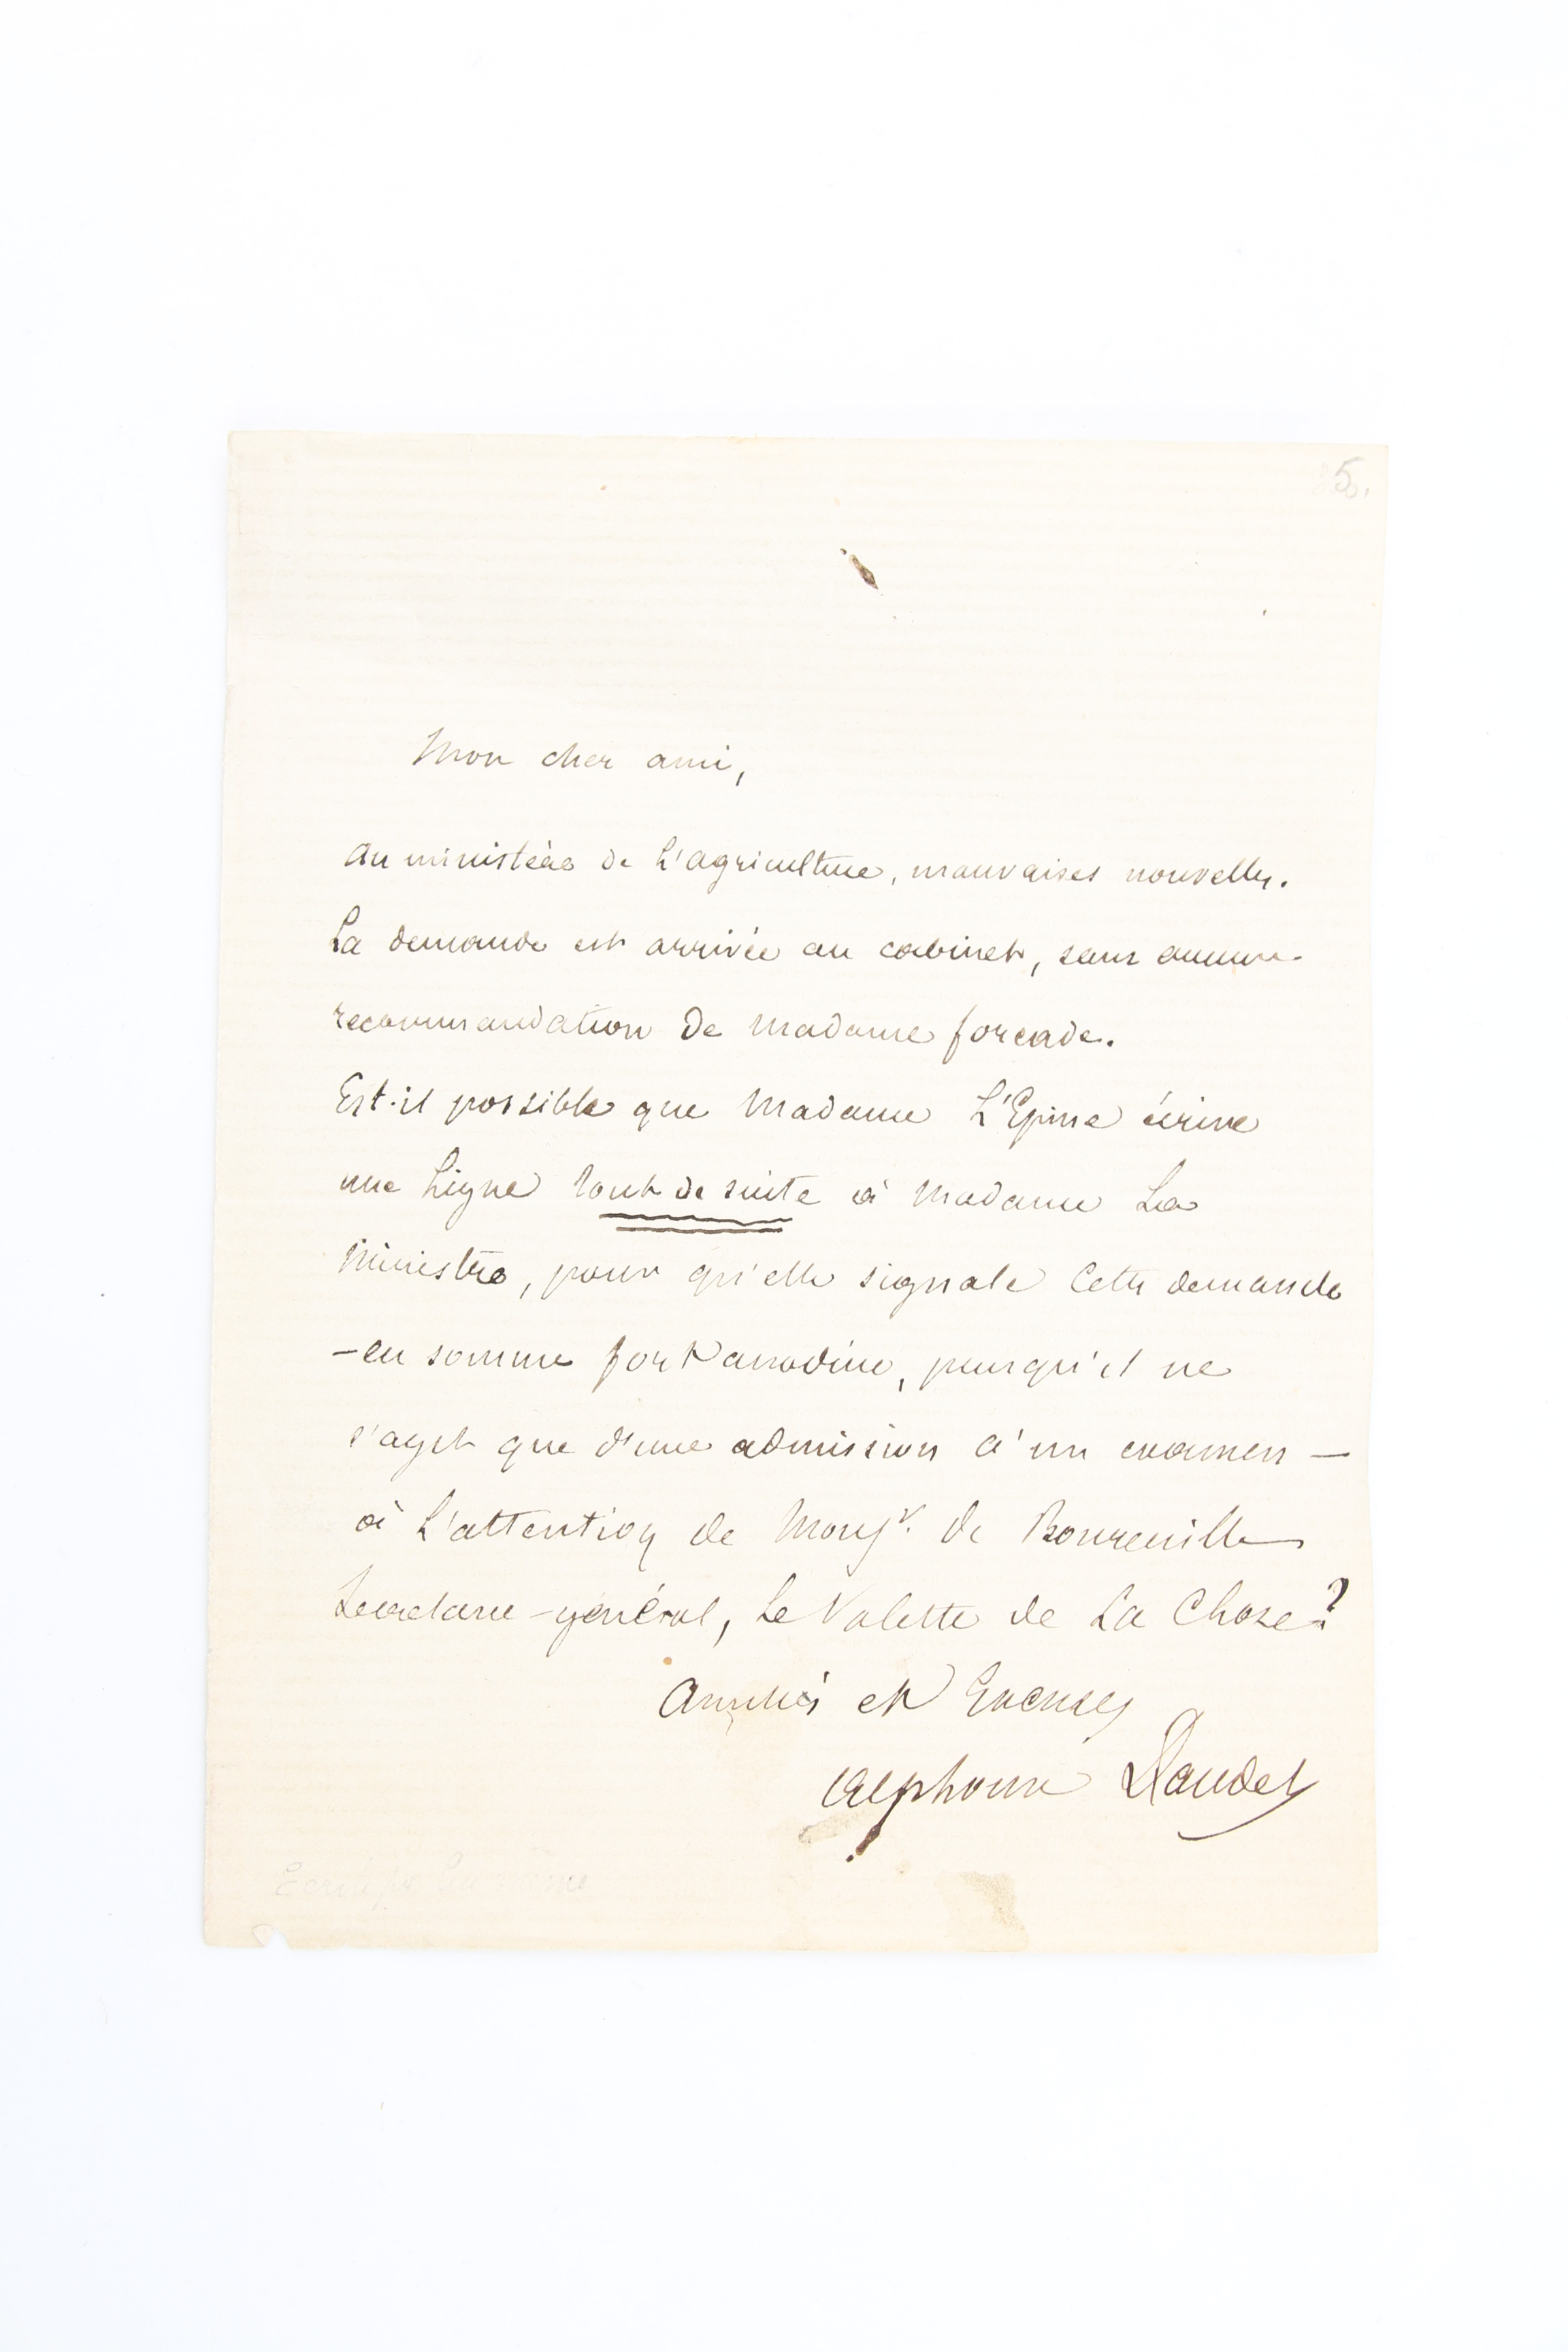 5.
Mon cher ami,
Au ministère de L'agriculture, mauvaises nouvelles.
La demande est arrivée au cabinet, sans aucune
recommandation de Madame forcade.
Est-il possible que Madame L'Epine écrive
une Ligne tout de suite à Madame La
Ministre, pour qu'elle signale Cette demande
- en somme fort anodine, puisqu'il ne
s'agit que d'une admission à un examen -
à L'attention de Monsr. de Boureuille
Secrétaire-général, Le Valette de La Chose?
Amitiés et Excuses
Alphonse Daudet